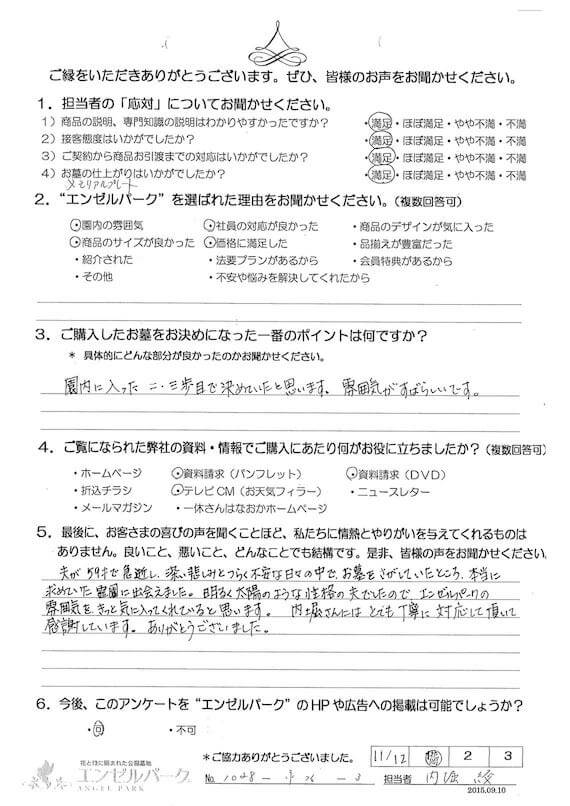 ご縁をいただきありがとうございます。ぜひ、皆様のお声をお聞かせください。
1．担当者の「応対」についてお聞かせください。
1）商品の説明、専門知識の説明はわかりやすかったですか？ ・満足・ほぼ満足・やや不満・不満
2）接客態度はいかがでしたか？ ・満足・ほぼ満足・やや不満・不満
3）ご契約から商品お引渡までの対応はいかがでしたか？ ・満足・ほぼ満足・やや不満・不満
4）お墓の仕上がりはいかがでしたか？ ・満足・ほぼ満足・やや不満・不満
メモリアルプレート
2．“エンゼルパーク”を選ばれた理由をお聞かせください。（複数回答可）
・園内の雰囲気 ・社員の対応が良かった ・商品のデザインが気に入った
・商品のサイズが良かった ・価格に満足した ・品揃えが豊富だった
・紹介された ・法要プランがあるから ・会員特典があるから
・その他 ・不安や悩みを解決してくれたから
3．ご購入したお墓をお決めになった一番のポイントは何ですか？
＊ 具体的にどんな部分が良かったのかお聞かせください。
園内に入った 二・三歩目で決めていたと思います。雰囲気がすばらしいです。
4．ご覧になられた弊社の資料・情報でご購入にあたり何がお役に立ちましたか？（複数回答可）
・ホームページ ・資料請求（パンフレット） ・資料請求（DVD）
・折込チラシ ・テレビCM（お天気フィラー） ・ニュースレター
・メールマガジン ・一休さんはなおかホームページ
5．最後に、お客さまの喜びの声を聞くことほど、私たちに情熱とやりがいを与えてくれるものは
ありません。良いこと、悪いこと、どんなことでも結構です。是非、皆様の声をお聞かせください。
夫が59才で急逝し、深い悲しみとつらく不安な日々の中で、お墓をさがしていたところ、本当に
求めていた霊園に出会えました。明るく太陽のような性格の夫でしたので、エンゼルパークの
雰囲気をきっと気に入ってくれていると思います。 内堀さんにはとても丁寧に対応して頂いて
感謝しています。ありがとうございました。
6．今後、このアンケートを“エンゼルパーク”のHPや広告への掲載は可能でしょうか？
・可 ・不可
＊ご協力ありがとうございました。 11/12 2 3
花と緑に囲まれた公園墓地
エンゼルパーク
ANGEL PARK
No. 1028 担当者 内堀
2015.09.10